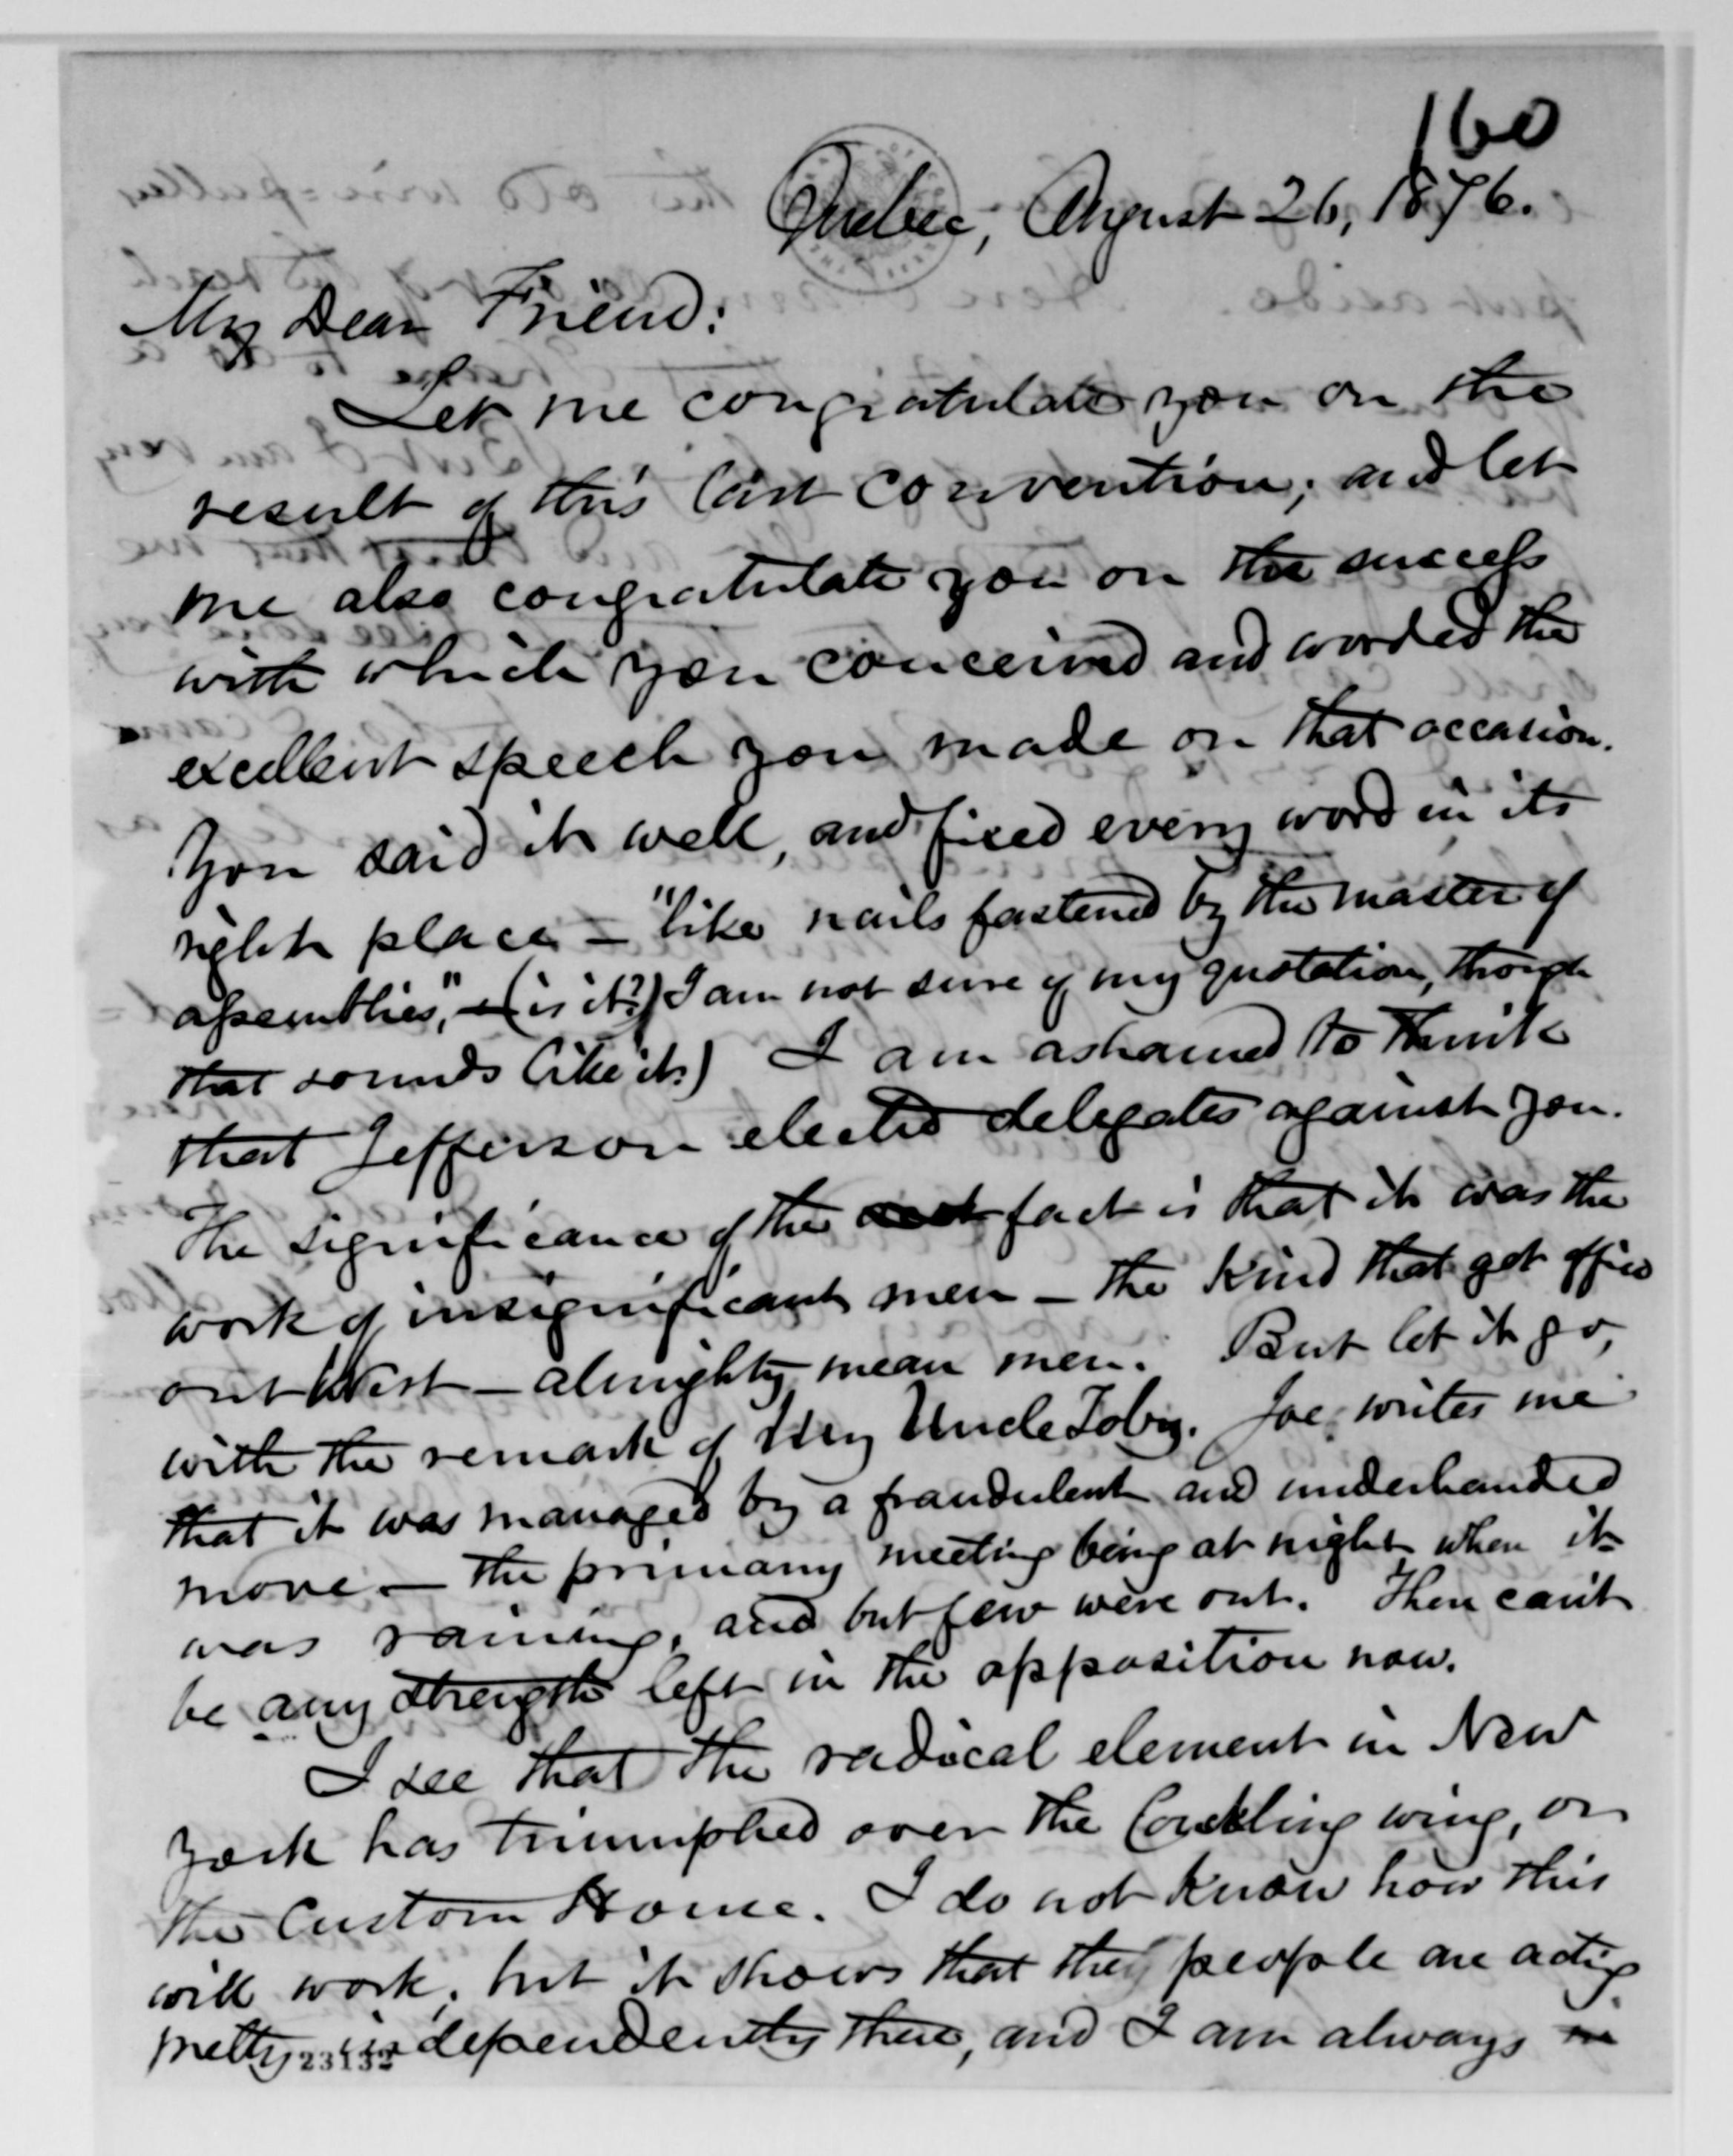 160
Quebec, August 26, 1876.
My Dear Friend:
Let me congratulate you on the
result of this last convention; and let
me also congratulate you on the success
with which you conceived and worded the
excellent speech you made on that occasion.
You said it well, and fixed every word in its
right place – "like nails fastened by the master of
assemblies," – (is it?) I am not sure of my quotation, though
that sounds like it.) I am ashamed to think
that Jefferson elected delegates against you.
The significance of the fact is that it was the
work of insignificant men – the kind that get office
out West – almighty mean men. But let it go,
with the remark of My Uncle Toby. Joe writes me
that it was managed by a fraudulent and underhanded
move – the primary meeting being at night when it
was raining, and but few were out. There can't
be any strength left in the opposition now.
I see that the radical element in New
York has triumphed over the Conkling wing, or
the Custom House. I do not know how this
will work, but it shows that the people are acting
pretty independently there, and I am always
23132